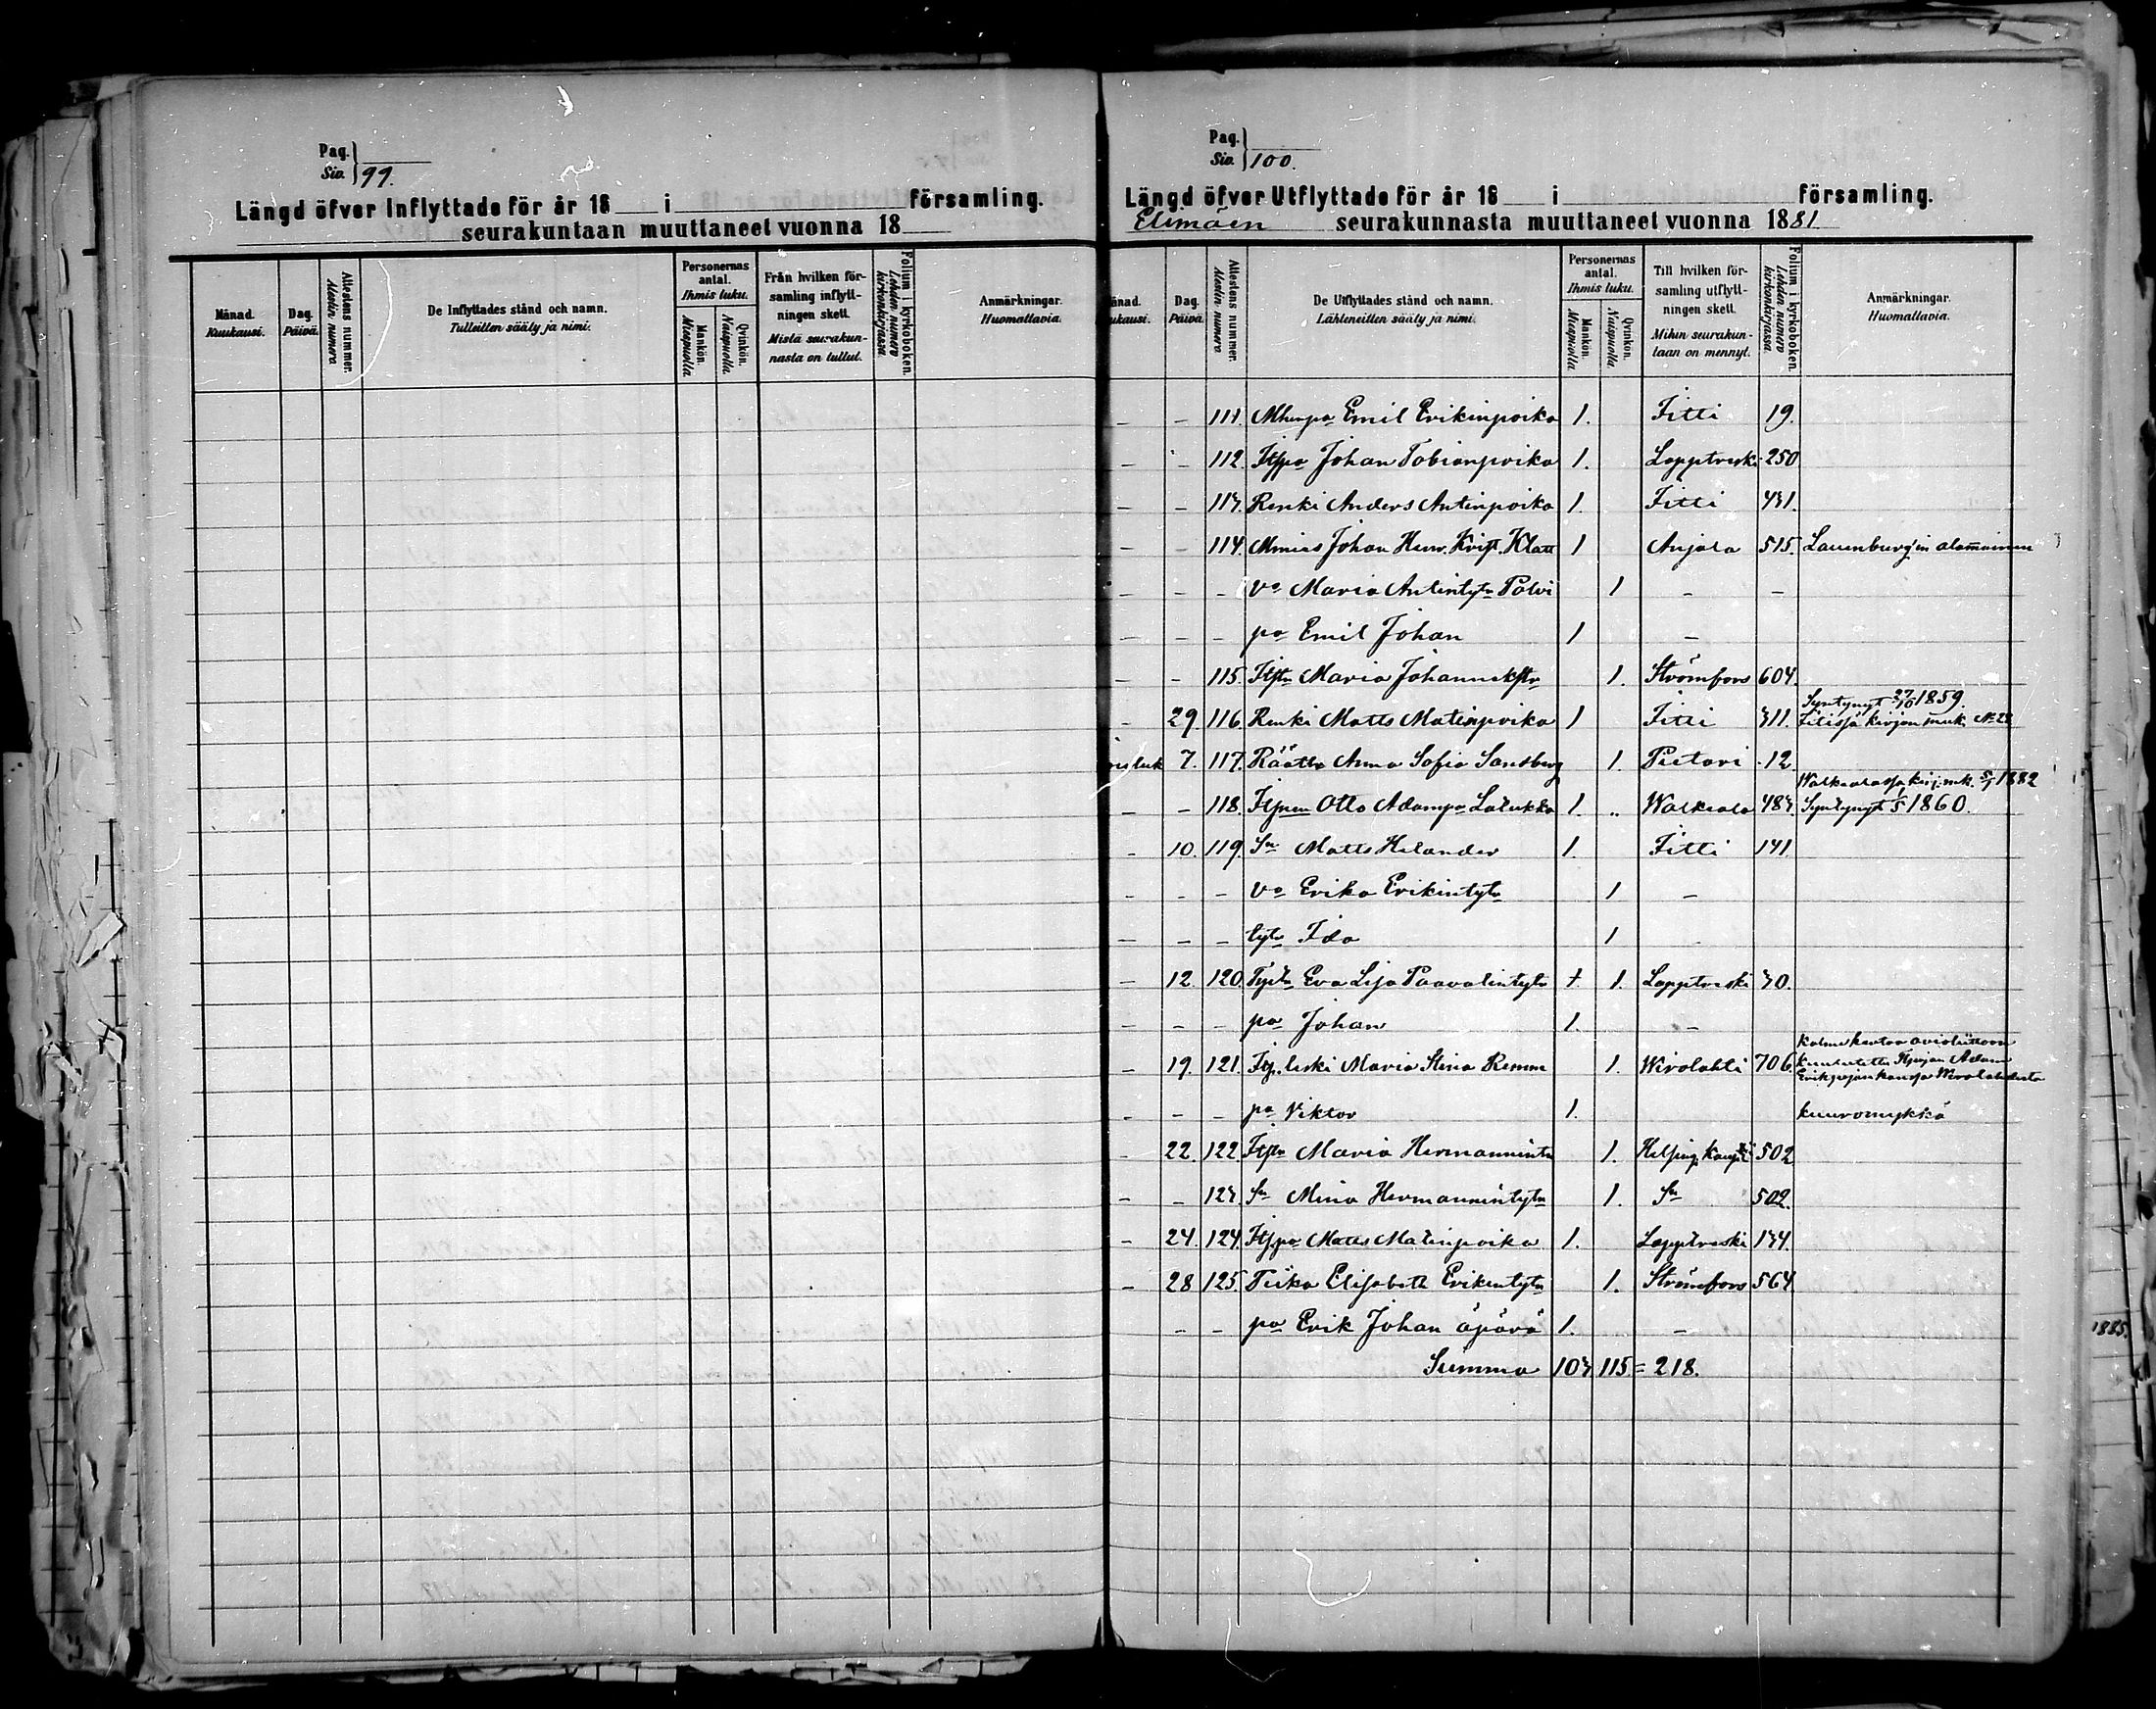 Pag.
Siv. 99.
Längd öfver Inflyttade för år 18 i församling.
seurakuntaan muuttaneet vuonna 18
Månad. Kuukausi.
Dag. Päivä.
Attestens nummer. Alestin numero.
De Inflyttades stånd och namn. Tulleitten sääty ja nimi.
Personernas antal. Ihmis luku.
Mankön. Miespuolia
Qvinkön. Naispuolia.
Från hvilken för-
samling inflytt-
ningen skett.
Mistä seurakun-
nasta on tullut.
Folium i kyrkoboken. Lehden numero kirkonkirjassa.
Anmärkningar. Huomattavia.
Pag.
Siv. 100.
Längd öfver Utflyttade för år 18 i församling.
Elimäen seurakunnasta muuttaneet vuonna 1881
ånad. ukausi.
Dag. Päivä
Attestens nummer. Alestin numero.
De Utflyttades stånd och namn. Lähteneitten sääty ja nimi.
Personernas antal. Ihmis luku.
Mankön. Miespuolia
Qvinkön. Naispuolia.
Till hvilken för-
samling utflytt-
ningen skett.
Mihin seurakun-
taan on mennyt.
Folium i kyrkoboken. Lehden numero kirkonkirjassa
Anmärkningar. Huomattavia.
– – 111. Emil Erikinpoika 1. Iitti 19.
– – 112. Itspa Johan Tobianpoika 1. Lapptreski 250
– – 113. Renki Anders Antinpoika 1. Iitti 431.
– – 114. Johan Henr. Krist. Klatt 1 Anjala 515. Lauenburg'in alamainen
– – – va Maria Antintytr Polvi 1 – –
– – – pa Emil Johan 1 –
– – 115. Itstr Maria Johannekstr 1. Strömfors 604.
Syntynyt 27/10 1859.
– 29. 116. Renki Matts Matinpoika 1 Iitti 311. Iitissä kirjan muk. No 28
7. 117. Räätäl Anna Sofia Sandberg 1. Pietari 12
Walkealassa kirj. mk. 5/1 1882
– – 118. Otto Adampa Latukka 1. „ Walkeala 483. Syntynyt 5 1860.
– 10. 119. Sn Matts Helander 1. Iitti 141
– – – va Erika Erikintytr 1 –
– – – tytr Ida 1 –
– 12. 120. Eva Lisa Paavalintytr + 1. Lapptreski 30.
– – – pa Johan 1. –
Kolme kertaa avioliittoon
– 19. 121. Itp. leski Maria Stina Remm 1. Wirolahti 706. kuulutettu Itspojan Adam
Erikpojan kanssa Wirolahdesta
– – – pa Viktor 1. kuuromykkä
– 22. 122. Itstr Maria Hermannintr 1. Helsing. kaup. 502
– – 123. Sn Mina Hermannintytr 1. Sn 502.
– 24. 124. Itspa Matts Matinpoika 1. Lapptreski 134.
– 28 125. Piika Elisabett Erikintytr 1. Strömfors 564
– – pa Erik Johan äpärä 1. –
Summa 103 115 = 218.
1885.